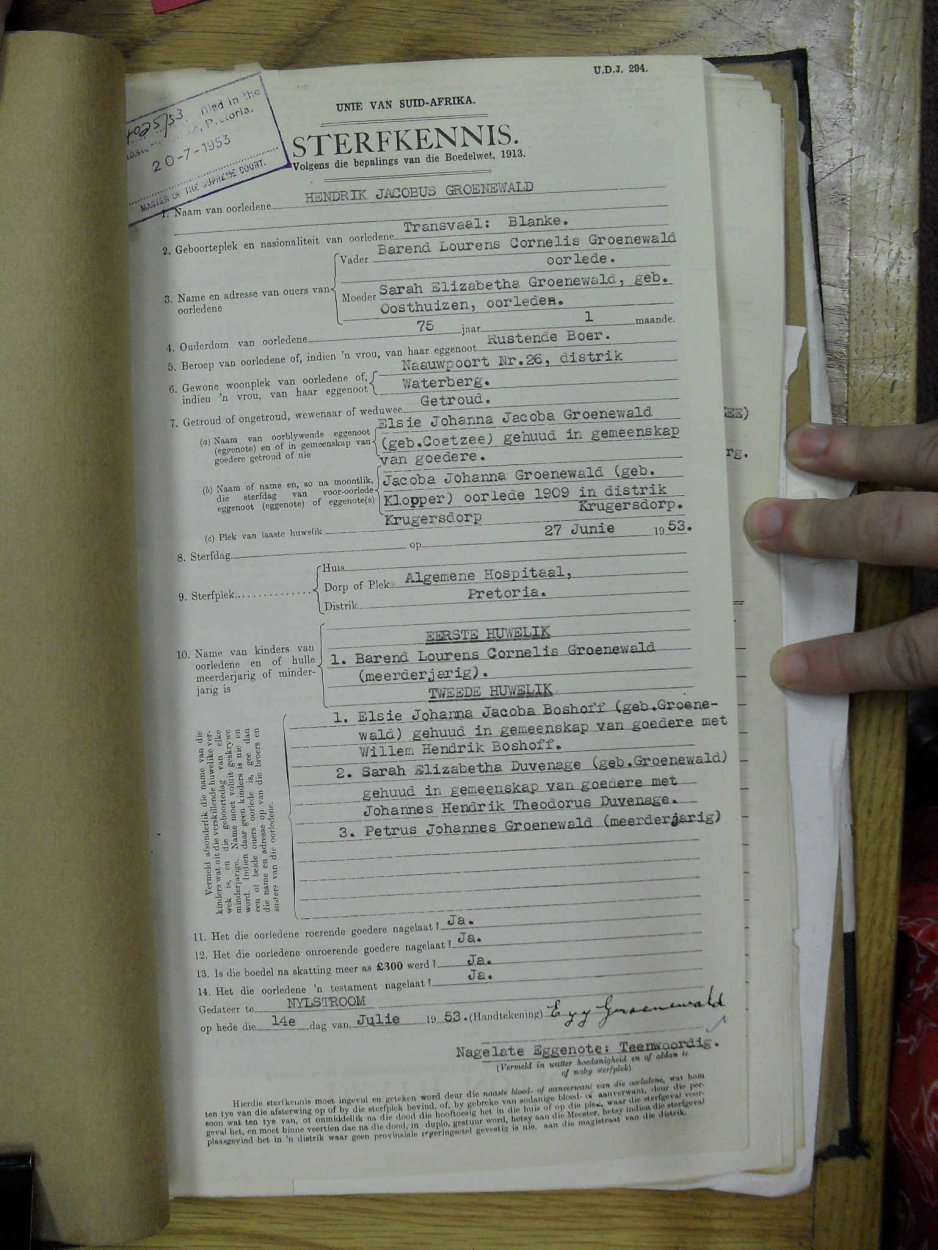 U.D.J. 294.
4025/53 filed in the
Pretoria.
20-7-1953
MASTER OF THE SUPREME COURT.
UNIE VAN SUID-AFRIKA.
STERFKENNIS.
Volgens die bepalings van die Boedelwet, 1913.
1. Naam van oorledene HENDRIK JACOBUS GROENEWALD
2. Geboorteplek en nasionaliteit van oorledene Transvaal: Blanke.
3. Name en adresse van ouers van oorledene
Vader Barend Lourens Cornelis Groenewald
oorlede.
Moeder Sarah Elizabetha Groenewald, geb.
Oosthuizen, oorleden.
4. Ouderdom van oorledene 75 jaar 1 maande.
5. Beroep van oorledene of, indien 'n vrou, van haar eggenoot Rustende Boer.
6. Gewone woonplek van oorledene of, Naauwpoort Nr.26, distrik
indien 'n vrou, van haar eggenoot Waterberg.
7. Getroud of ongetroud, wewenaar of weduwee Getroud.
(a) Naam van oorblywende eggenoot (eggenote) en of in gemeenskap van goedere getroud of nie
Elsie Johanna Jacoba Groenewald
(geb.Coetzee) gehuud in gemeenskap
van goedere.
(b) Naam of name en, so na moontlik, die sterfdag van voor-oorlede eggenoot (eggenote) of eggenote(s)
Jacoba Johanna Groenewald (geb.
Klopper) oorlede 1909 in distrik
Krugersdorp.
(c) Plek van laaste huwelik Krugersdorp
8. Sterfdag op 27 Junie 1953.
9. Sterfplek
Huis
Dorp of Plek Algemene Hospitaal,
Distrik Pretoria.
10. Name van kinders van oorledene en of hulle meerderjarig of minderjarig is
EERSTE HUWELIK
1. Barend Lourens Cornelis Groenewald
(meerderjarig).
TWEEDE HUWELIK
1. Elsie Johanna Jacoba Boshoff (geb.Groene-
wald) gehuud in gemeenskap van goedere met
Willem Hendrik Boshoff.
2. Sarah Elizabetha Duvenage (geb.Groenewald)
gehuud in gemeenskap van goedere met
Johannes Hendrik Theodorus Duvenage.
3. Petrus Johannes Groenewald (meerderjarig)
Vermeld afsonderlik die name van die
kinders wat uit die verskillende huwelike ver-
wek is, en die geboortedag van elke
minderjarige. Name moet voluit geskrywe
word. Indien daar geen kinders is nie en
een of beide ouers oorlede is, gee dan
die name en adresse op van die broers en
susters van die oorledene.
11. Het die oorledene roerende goedere nagelaat? Ja.
12. Het die oorledene onroerende goedere nagelaat? Ja.
13. Is die boedel na skatting meer as £300 werd? Ja.
14. Het die oorledene 'n testament nagelaat? Ja.
Gedateer te NYLSTROOM
op hede die 14e dag van Julie 1953. (Handtekening) E J J Groenewald
Nagelate Eggenote: Teenwoordig.
(Vermeld in watter hoedanigheid en of aldan te
of naby sterfplek).
Hierdie sterfkennis moet ingevul en geteken word deur die naaste bloed- of aanverwant van die oorledene, wat hom
ten tye van die afsterwing op of by die sterfplek bevind, of, by gebreke van sodanige bloed- of aanverwant, deur die per-
soon wat ten tye van, of onmiddellik na die dood die hooftoesig het in die huis of op die plek, waar die sterfgeval voor-
geval het, en moet binne veertien dae na die dood, in duplo, gestuur word, hetsy aan die Meester, hetsy indien die sterfgeval
plaasgevind het in 'n distrik waar geen provinsiale regeringsetel gevestig is nie, aan die magistraat van die distrik.